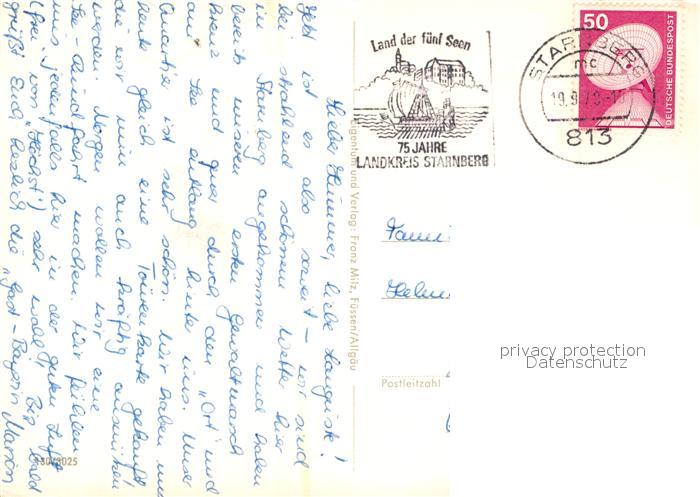 Liebe Hümmer, liebe Auguste!
Jetzt ist es also soweit – wir sind
bei strahlend schönem Wetter hier
in Starnberg angekommen und haben
bereits unseren ersten Gewaltmarsch
kreuz und quer durch den "Ort" und
am See entlang hinter uns. Unser
Quartier ist sehr schön. Wir haben uns
heute gleich eine Tourenkarte gekauft,
die wir nun auch kräftig ausnützen
werden. Morgen wollen wir eine
See-Rundfahrt machen. Wir fühlen
uns jedenfalls hier in der guten Luft
(frei von "Höchst"!) sehr wohl. Bis bald
grüßt Euch herzlich die "Gast-Bayerin" Marion
430/3025
Eigentum und Verlag: Franz Milz, Füssen/Allgäu
Land der fünf Seen
75 JAHRE
LANDKREIS STARNBERG
STARNBERG
mc
19.9.79
813
50
DEUTSCHE BUNDESPOST
Fami
Helm
Postleitzahl
privacy protection
Datenschutz